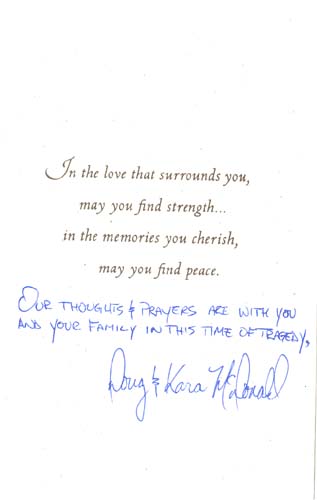 In the love that surrounds you,
may you find strength...
in the memories you cherish,
may you find peace.
OUR THOUGHTS & PRAYERS ARE WITH YOU
AND YOUR FAMILY IN THIS TIME OF TRAGEDY,
Doug & Kara McDonald